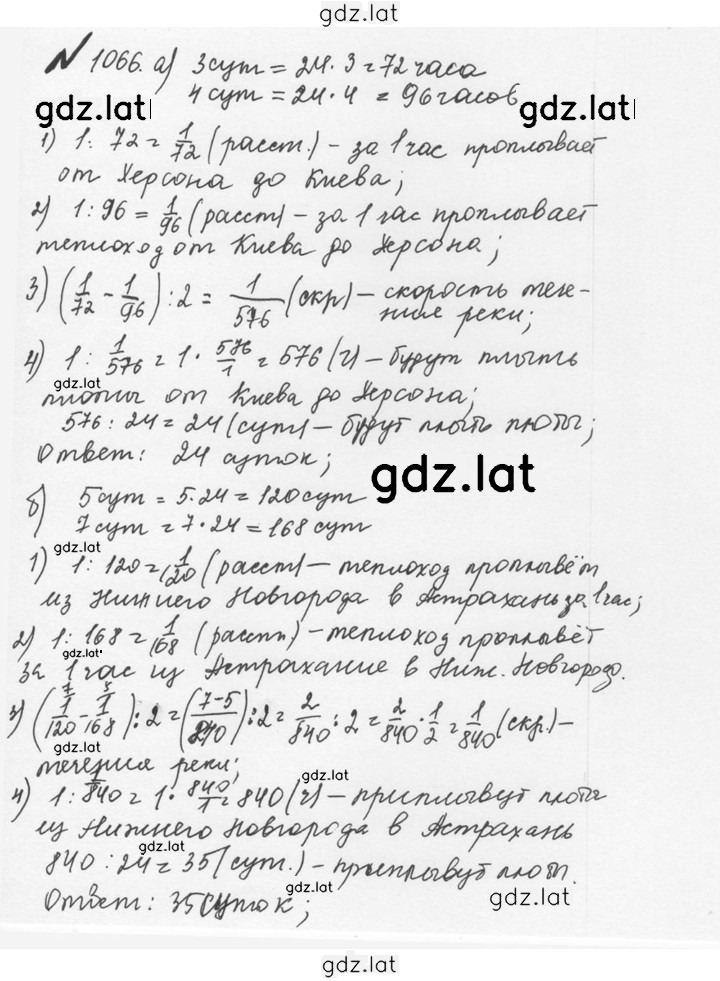 gdz.lat
№ 1066. а) 3 сут = 24 · 3 = 72 часа
4 сут = 24 · 4 = 96 часов
gdz.lat
gdz.lat
1) 1 : 72 = 1/72 (расст.) – за 1 час проплывает
от Херсона до Киева;
2) 1 : 96 = 1/96 (расст) – за 1 час проплывает
теплоход от Киева до Херсона;
3) (1/72 - 1/96) : 2 = 1/576 (скр) – скорость тече-
ние реки;
4) 1 : 1/576 = 1 · 576/1 = 576 (ч) – будут плыть
gdz.lat
плоты от Киева до Херсона;
576 : 24 = 24 (сут) – будут плыть плоты;
Ответ: 24 суток;
gdz.lat
б) 5 сут = 5 · 24 = 120 сут
7 сут = 7 · 24 = 168 сут
gdz.lat
1) 1 : 120 = 1/120 (расст) – теплоход проплывёт
из Нижнего Новгорода в Астрахань за 1 час;
2) 1 : 168 = 1/168 (расст) – теплоход проплывёт
gdz.lat
за 1 час из Астрахание в Ниж. Новгород.
3) (1/120 - 1/168) : 2 = (7-5/840) : 2 = 2/840 : 2 = 2/840 · 1/2 = 1/840 (скр.) –
течения реки;
gdz.lat
gdz.lat
4) 1 : 1/840 = 1 · 840/1 = 840 (ч) – приплывут плоты
из Нижнего Новгорода в Астрахань
840 : 24 = 35 (сут.) – приплывут плот.
gdz.lat
gdz.lat
Ответ: 35 суток;
gdz.lat